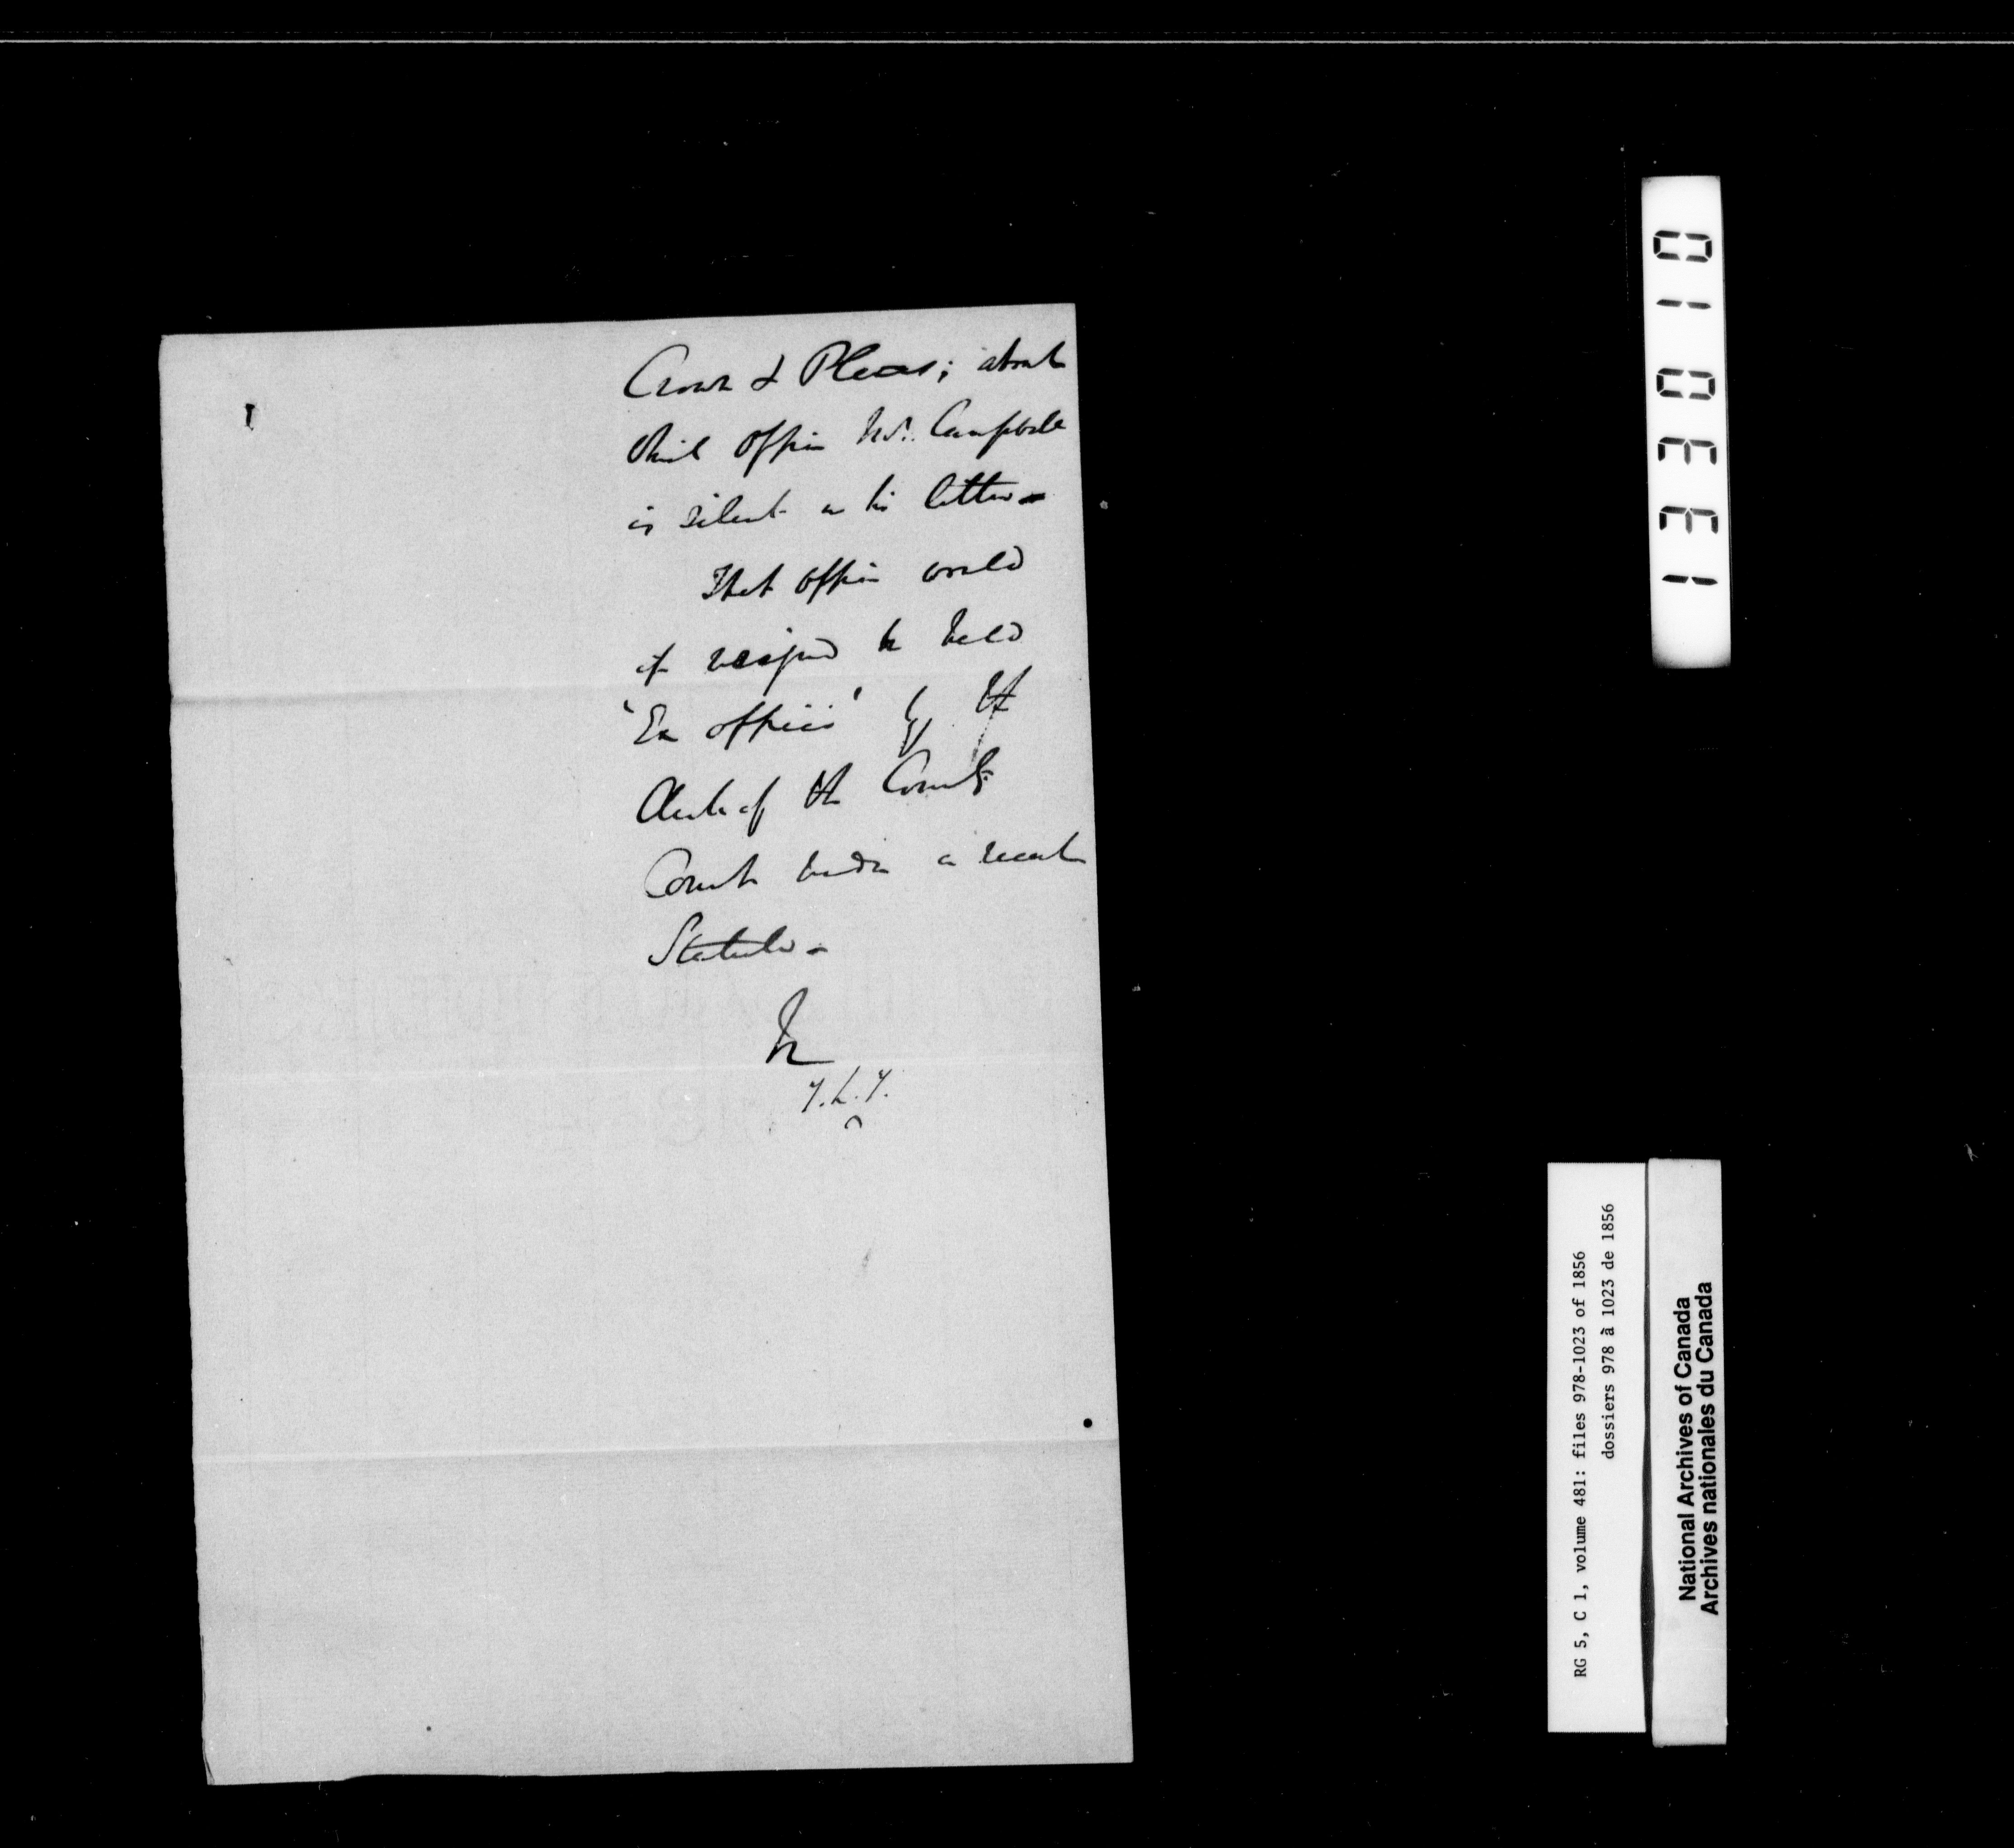 Crown & Pleas; about
which office Mr. Campbell
is silent in his letter -
That office would
if resigned be held
'Ex officio' by the
Clerk of the County
Court under a recent
Statute -
011 0331
RG 5, C 1, volume 481: files 978-1023 of 1856
dossiers 978 à 1023 de 1856
National Archives of Canada
Archives nationales du Canada